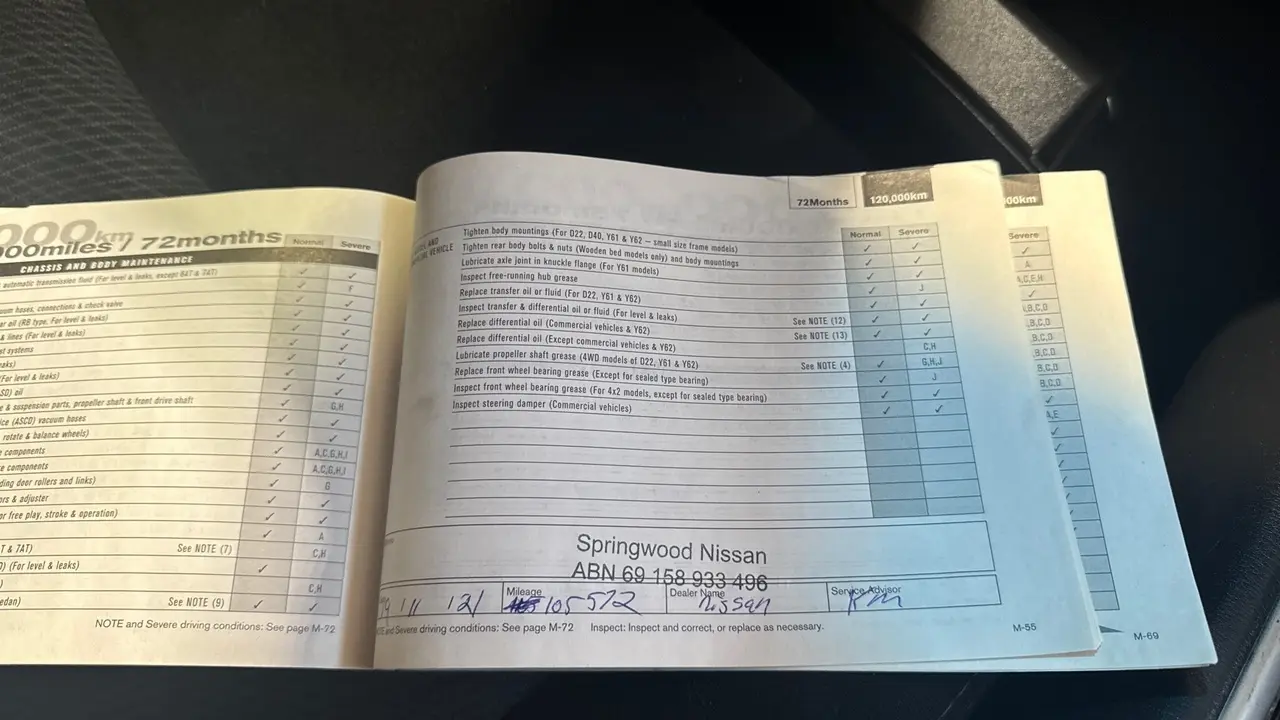 000km
000miles / 72months
Normal Severe
CHASSIS AND BODY MAINTENANCE
automatic transmission fluid (For level & leaks, except 6AT & 7AT)
F
uum hoses, connections & check valve
ar oil (RB type, For level & leaks)
& lines (For level & leaks)
st systems
aks)
For level & leaks)
SD) oil
e & suspension parts, propeller shaft & front drive shaft
G,H
ice (ASCD) vacuum hoses
rotate & balance wheels)
e components
A,C,G,H,I
e components
A,C,G,H,I
ding door rollers and links)
G
ors & adjuster
or free play, stroke & operation)
A
T & 7AT) See NOTE (7)
C,H
) (For level & leaks)
)
C,H
edan) See NOTE (9)
NOTE and Severe driving conditions: See page M-72
72Months 120,000km
Normal Severe
AND
VEHICLE
Tighten body mountings (For D22, D40, Y61 & Y62 – small size frame models)
Tighten rear body bolts & nuts (Wooden bed models only) and body mountings
Lubricate axle joint in knuckle flange (For Y61 models)
J
Inspect free-running hub grease
Replace transfer oil or fluid (For D22, Y61 & Y62)
See NOTE (12)
Inspect transfer & differential oil or fluid (For level & leaks)
See NOTE (13)
Replace differential oil (Commercial vehicles & Y62)
C,H
Replace differential oil (Except commercial vehicles & Y62)
See NOTE (4) G,H,J
Lubricate propeller shaft grease (4WD models of D22, Y61 & Y62)
J
Replace front wheel bearing grease (Except for sealed type bearing)
Inspect front wheel bearing grease (For 4x2 models, except for sealed type bearing)
Inspect steering damper (Commercial vehicles)
Springwood Nissan
ABN 69 158 933 496
Mileage Dealer Name Service Advisor
9 / 11 / 21 105572 Nissan
NOTE and Severe driving conditions: See page M-72 Inspect: Inspect and correct, or replace as necessary.
M-55
00km
Severe
A
A,C,E,H
A,B,C,D
B,C,D
B,C,D
B,C,D
B,C,D
A,E
M-69